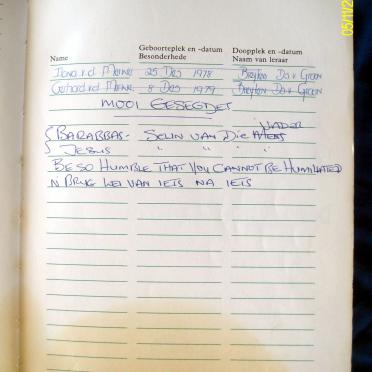 05/11/2
Geboorteplek en -datum Doopplek en -datum
Name Besonderhede Naam van leraar
25 Des 1978 Breyten
Gerhard 8 Des 1979 Breyten
MOOI GESEGDES
VADER
BARABBAS - SEUN VAN DIE MENS
JESUS " " " "
BE SO HUMBLE THAT YOU CANNOT BE HUMILIATED
N BRUG LEI VAN IETS NA IETS